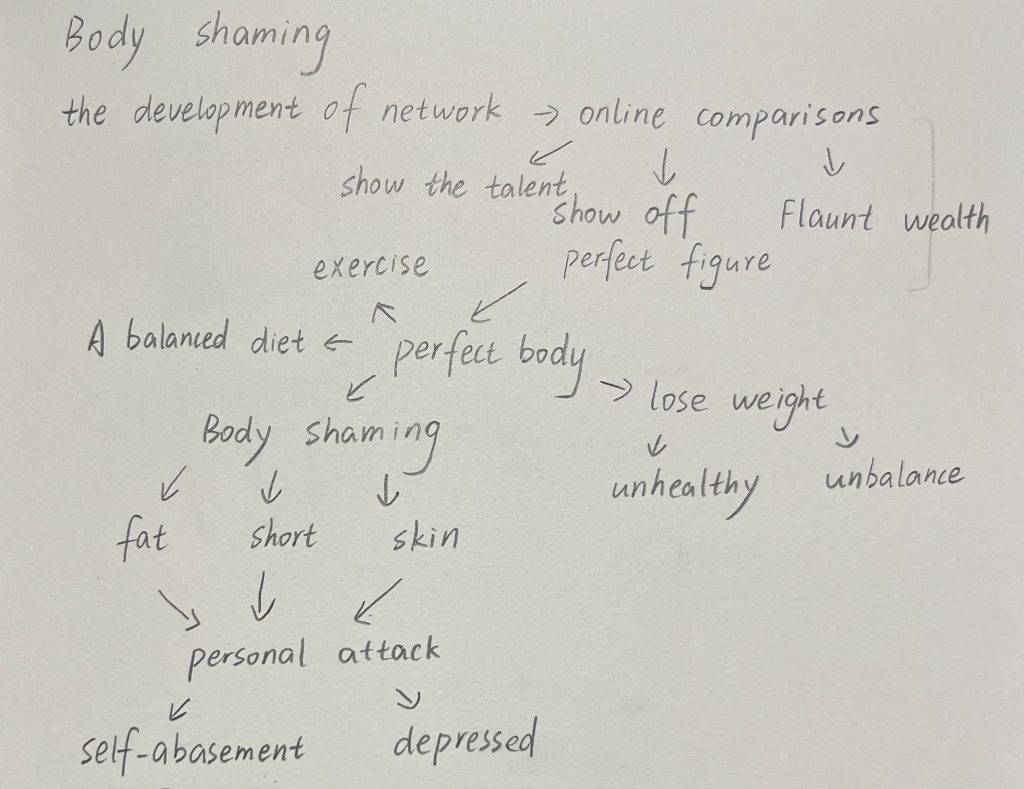 Body shaming
the development of network → online comparisons
↙ ↓ ↓
show the talent
show off Flaunt wealth
exercise perfect figure
↖ ↙
A balanced diet ← perfect body
↙ → lose weight
Body shaming ↙ ↘
↙ ↓ ↓ unhealthy unbalance
fat short skin
↘ ↓ ↙
personal attack
↙ ↘
self-abasement depressed